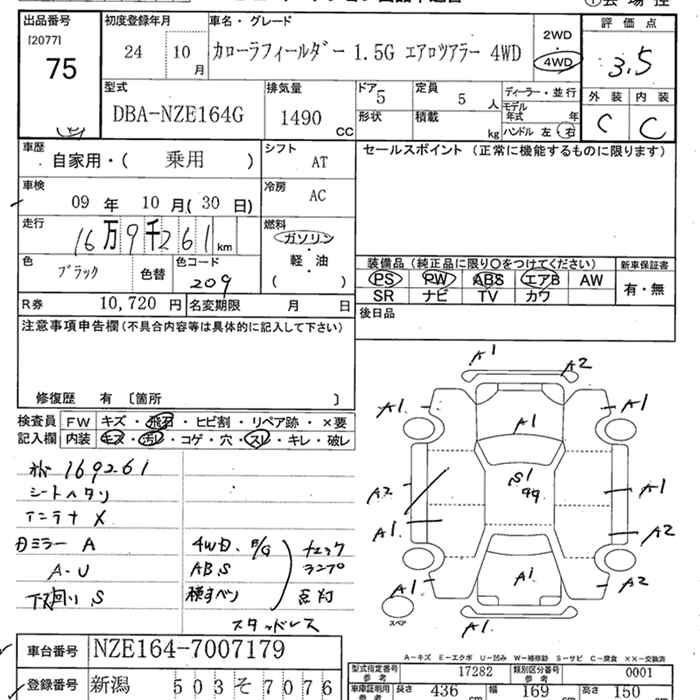 出品番号 初度登録年月 車名・グレード 評価点
[2077]
75 24 10月 カローラフィールダー 1.5G エアロツアラー 4WD 2WD 4WD 3.5
型式 排気量 ドア 5 定員 5人 ディーラー・並行 外装 内装
DBA-NZE164G 1490 CC 形状 積載 kg モデル年式 年 C C
ハンドル 左 右
車歴 自家用・( 乗用 ) シフト AT セールスポイント (正常に機能するものに限ります)
車検 09 年 10 月( 30 日) 冷房 AC
走行 16万9千261km 燃料 ガソリン・軽・油 ( )
色 ブラック 色替 色コード 209
装備品(純正品に限り○をつけてください) 新車保証書
PS PW ABS エアB AW 有・無
SR ナビ TV カワ
R券 10,720 円 名変期限 月 日 後日品
注意事項申告欄(不具合内容等は具体的に記入して下さい)
修復歴 有 〔箇所 〕
検査員 FW キズ・飛石・ヒビ割・リペア跡・×要
記入欄 内装 キズ・汚レ・コゲ・穴・スレ・キレ・破レ
169261
シートヘタリ
アンテナ X
カミラー A 4WD、 チェック
A-U ABS ランプ
下回り、S 横すべり 点灯
スタッドレス
A1 A2
A1 A1 A1
S1
99
A2 A1
A1 A2
A1 A1 A2
A1
スペア
A-キズ E-エクボ U-凹み W-補修跡 S-サビ C-腐食 ××-交換済
車台番号 NZE164-7007179
型式指定番号 参考 17282 類別区分番号 参考 0001
登録番号 新潟 503 そ 7076
車庫証明用 参考 長さ 436 cm 幅 169 cm 高さ 150 cm